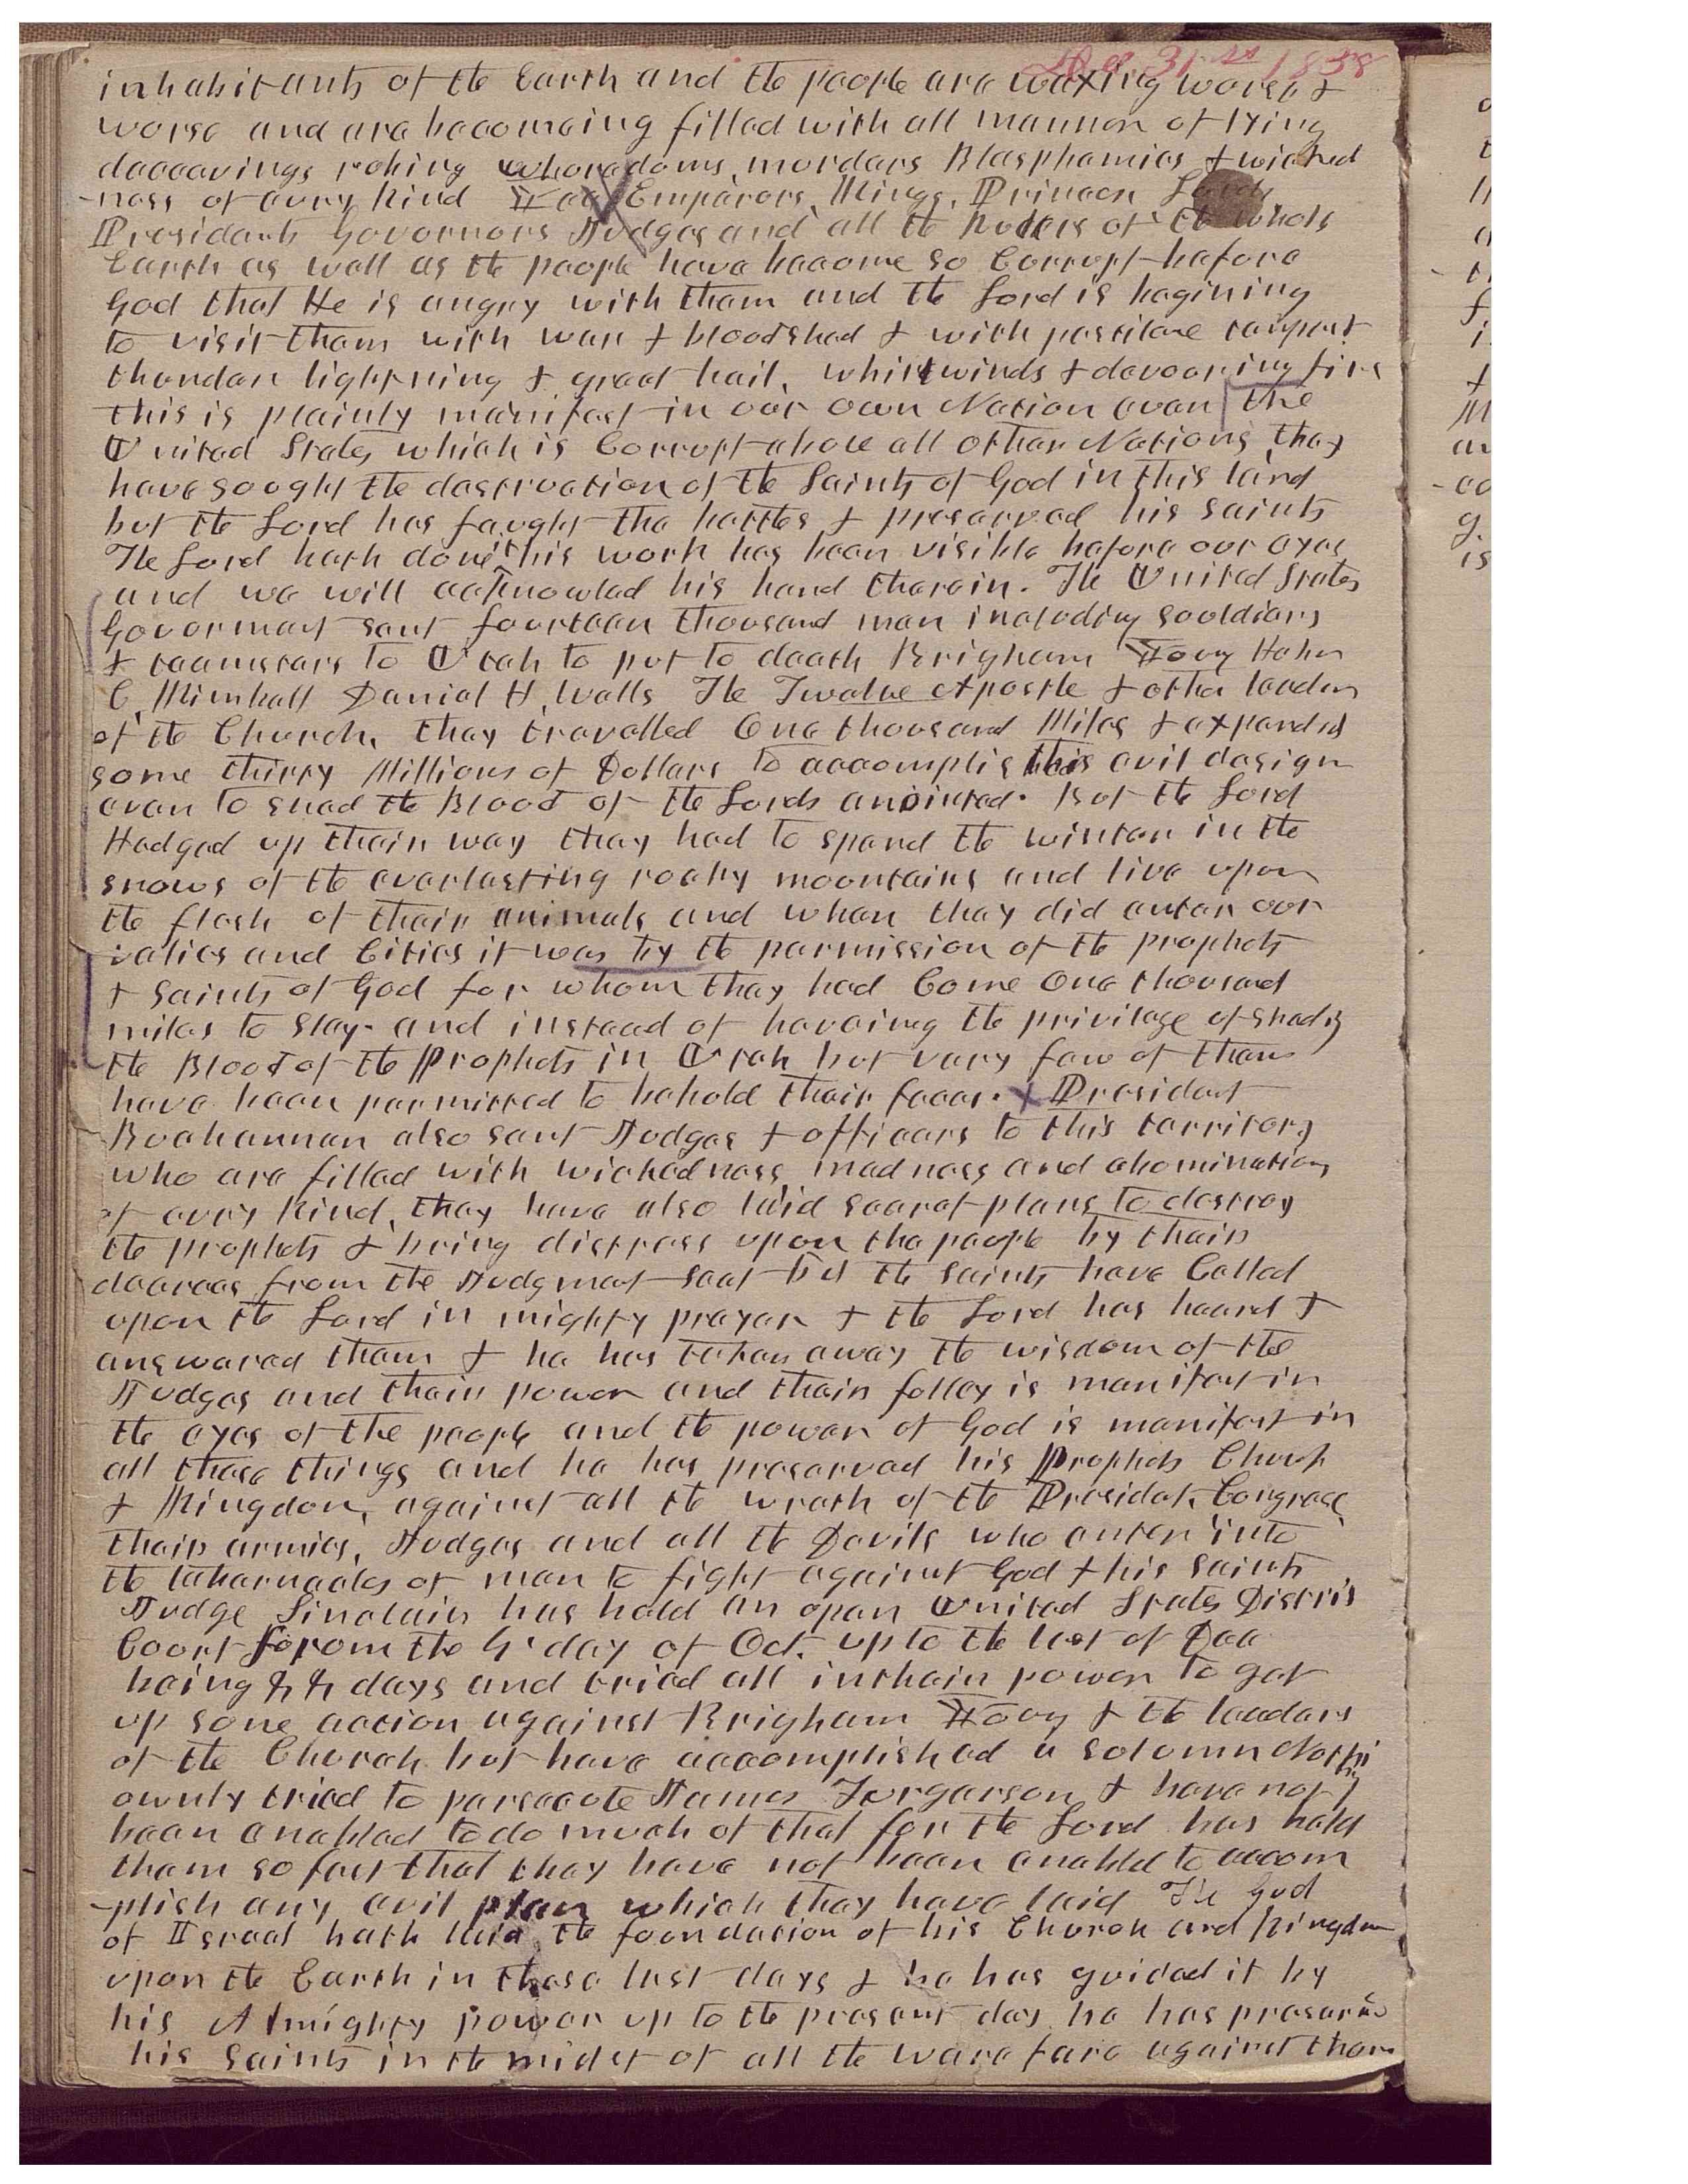 Dec 31st 1858
inhabitants of the Earth and the people are waxing worse &
worse and are becomeing filled with all manner of lying
deceevings whoredoms, murders Blasphemies & wicked
-ness of evry kind Yea Emperors, Kings, Princes Lords,
Presidents Governors Judges and all the Rulers of the whole
Earth as well as the people have become so Corrupt before
God that He is angry with them and the Lord is begining
to visit them with war & bloodshed & with pestilence tempest
thunder lightning & great hail, whirlwinds & devouring fire
this is plainly manifest in our own Nation even the
United States which is Corrupt above all other Nations, they
have sought the destruction of the Saints of God in this land
but the Lord has faught the battles & preserved his saints
The Lord hath done it his work has been visible before our eyes
and we will acknowled his hand therein. The United States
Goverment sent fourteen thousand men including souldiers
& teamsters to Utah to put to death Brigham Young Heber
C. Kimball Daniel H. Wells The Twelve Apostle & other leaders
of the Church, they travelled One thousand Miles & expended
some thirty Millions of Dollars to accomplish this evil design
even to shed the Blood of the Lords anointed. But the Lord
Hedged up their way they had to spend the winter in the
snows of the everlasting rocky mountains and live upon
the flesh of their animals and when they did enter our
vallies and Cities it was by the permission of the prophets
& Saints of God for whom they had Come One thousand
miles to slay. and instead of haveing the privilege of sheding
the Blood of the Prophets in Utah but very few of them
have been permitted to behold their faces. X President
Buchannan also sent Judges & officers to this territory
who are filled with wickedness, madness and abominations
of evry kind, they have also laid secret plans to destroy
the prophets & bring distress upon the people by their
decrees from the Judgment seat but the saints have Called
upon the Lord in mighty prayer & the Lord has heard &
answered them & he has taken away the wisdom of the
Judges and their power and their folley is manifest in
the eyes of the people and the power of God is manifest in
all these things and he has preserved his Prophets Church
& Kingdom, against all the wrath of the President, Congress,
their armies, Judges and all the Devils who enter into
the tabernacles of men to fight against God & his saints,
Judge Sinclair has held an open United States District
Court from the 4th day of Oct. up to the last of Dec
being days and tried all in their power to get
up sone action against Brigham Young & the leaders
of the Church but have accomplished a solomn Nothing
ownly tried to persecute James Furgarson & have not
been enabled to do much of that for the Lord has held
them so fast that they have not been enabled to accom
-plish any evil plan which they have laid The God
of Israel hath laid the foundation of his Church and Kingdom
upon the Earth in these last days & he has guided it by
his Almighty power up to the present day he has preserved
his saints in the midst of all the warefare against them